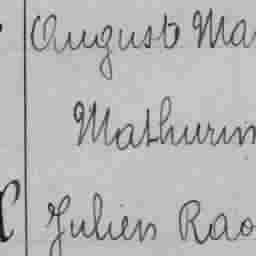 August Ma
Mathurin
Julien Rao